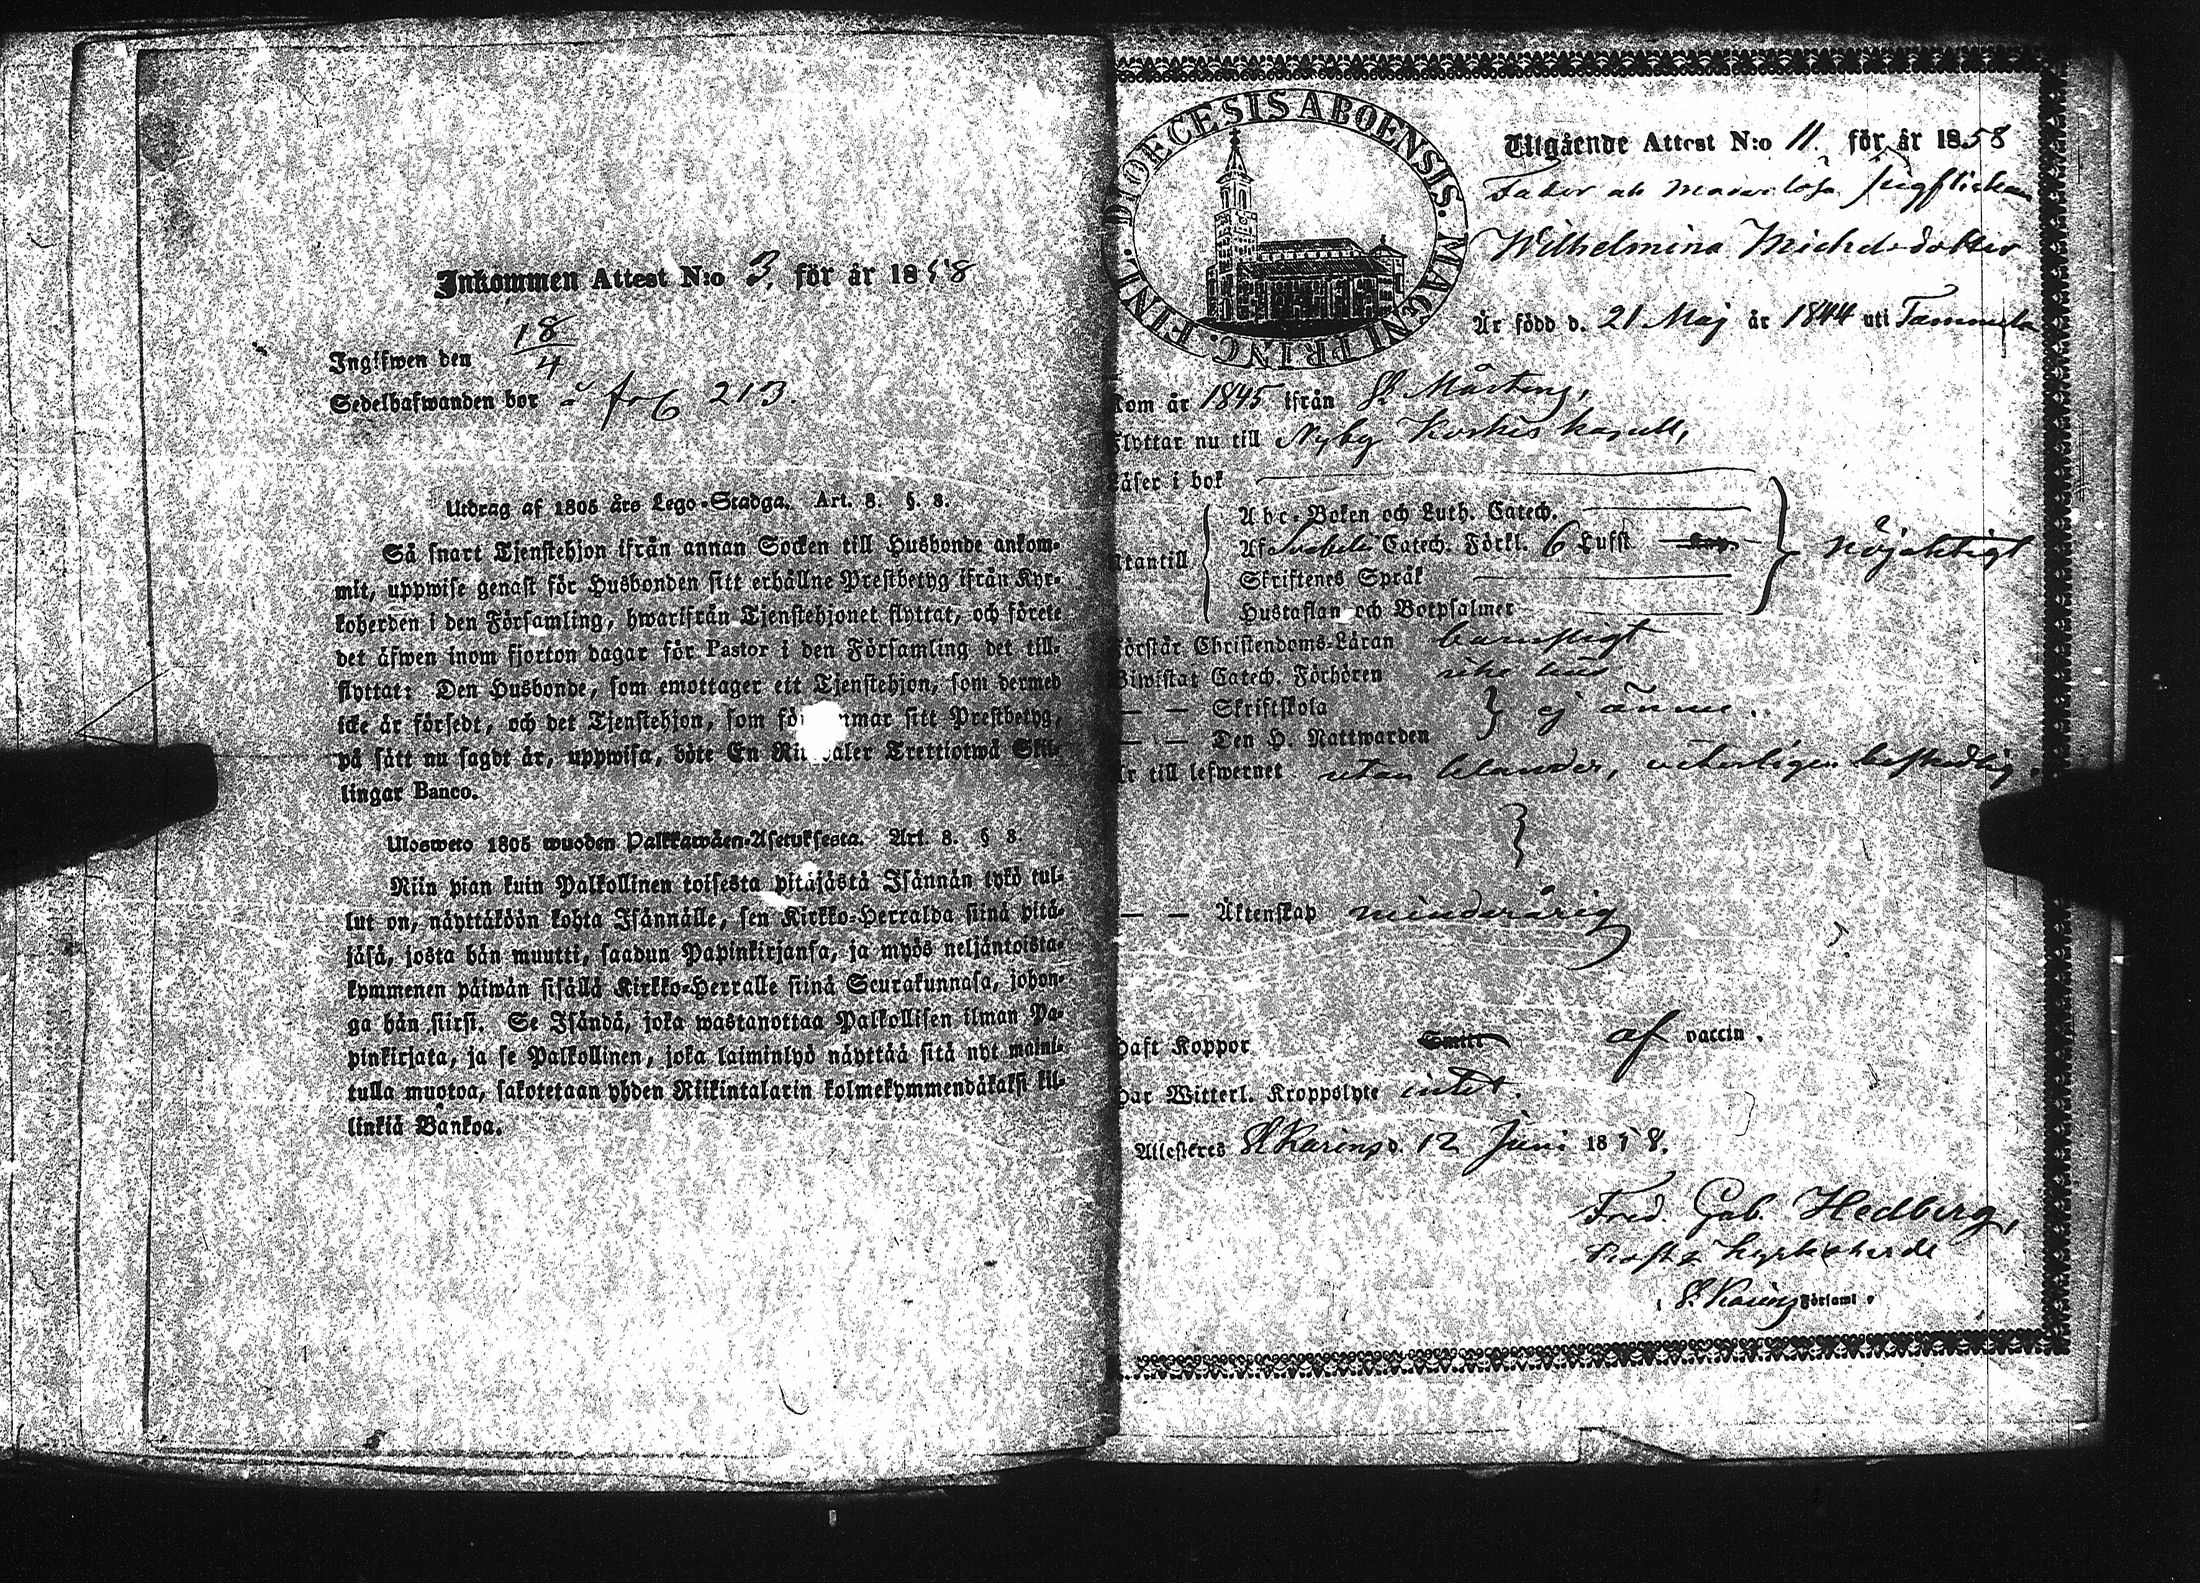 Inkommen Attest N:o 3. för år 1858
Ingifwen den 18/4
Sedelhafwanden bor å fol 213.
Utdrag af 1805 års Lego-Stadga. Art. 8. §. 8.
Så snart Tjenstehjon ifrån annan Socken till Husbonde ankom-
mit, uppwise genast för Husbonden sitt erhållne Prestbetyg ifrån Kyr-
koherden i den Församling, hwarifrån Tjenstehjonet flyttat, och förete
det äfwen inom fjorton dagar för Pastor i den Församling det till-
flyttat: Den Husbonde, som emottager ett Tjenstehjon, som dermed
icke är försedt, och det Tjenstehjon, som för mmar sitt Prestbetyg,
på sätt nu sagdt är, uppwisa, böte En Ri daler Trettiotwå Skil-
lingar Banco.
Ulosweto 1805 wuoden Palkkawäen-Asetuksesta. Art. 8. § 8.
Niin pian kuin Palkollinen toisesta pitäjästä Isännän tykö tul-
lut on, näyttäköön kohta Isännälle, sen Kirkko-Herralda siinä pitä-
jäsä, josta hän muutti, saadun Papinkirjansa, ja myös neljäntoista-
kymmenen päiwän sisällä Kirkko-Herralle siinä Seurakunnasa, johon-
ga hän siirsi. Se Isändä, joka wastanottaa Palkollisen ilman Pa-
pinkirjata, ja se Palkollinen, joka laiminlyö näyttää sitä nyt maini-
tulla muotoa, sakotetaan yhden Riikintalarin kolmekymmendäkaksi kil-
linkiä Bankoa.
DIOECESIS ABOENSIS. MAGNI PRINC. FINL.
Utgående Attest N:o 11. för år 1858
Fader och moderlösa pigflickan
Wilhelmina Michelsdotter
Är född d. 21 Maj år 1844 uti Tammela
Kom år 1845 ifrån St Mårtens,
Flyttar nu till Nyby Koskis kapell,
Läser i bok
Utantill
Abc-Boken och Luth. Catech.
Af Svebelii Catech. Förkl. 6 Lufst
Skriftenes Språk
Hustaflan och Botpsalmer
nöjaktigt
Förstår Christendoms-Läran barnsligt
Biwistat Catech. Förhören
— — Skriftskola
— — Den H. Nattwarden
ej ännu.
Är till lefwernet utan klander, veterligen beskedlig.
— — Äktenskap minderårig
Haft Koppor af vaccin.
Har Witterl. Kroppslyte intet.
Attesteres St Karins d. 12 Juni 1858.
Fred. Gab. Hedberg,
Prost & kyrkoherde
i St Karins Församl.